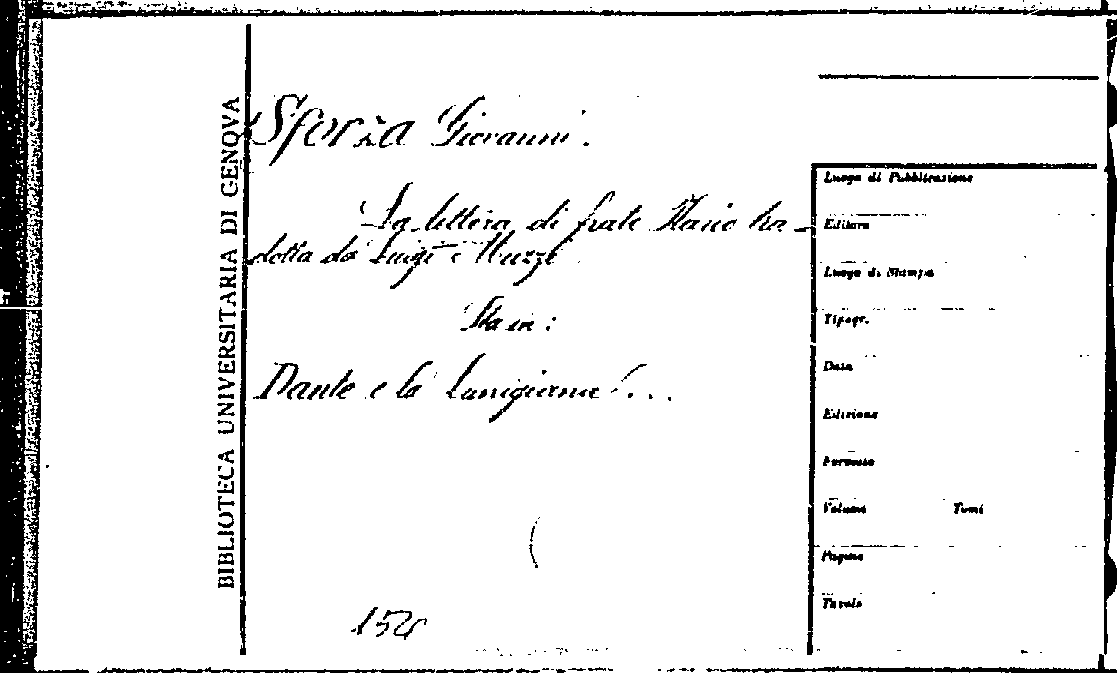 BIBLIOTECA UNIVERSITARIA DI GENOVA
Sforza Giovanni.
La lettera di frate Ilario tra-
dotta da Luigi Muzzi
Sta in:
Dante e la Lunigiana...
Luogo di Pubblicazione
Editore
Luogo di Stampa
Tipogr.
Data
Edizione
Formato
Volumi Tomi
Pagine
Tavole